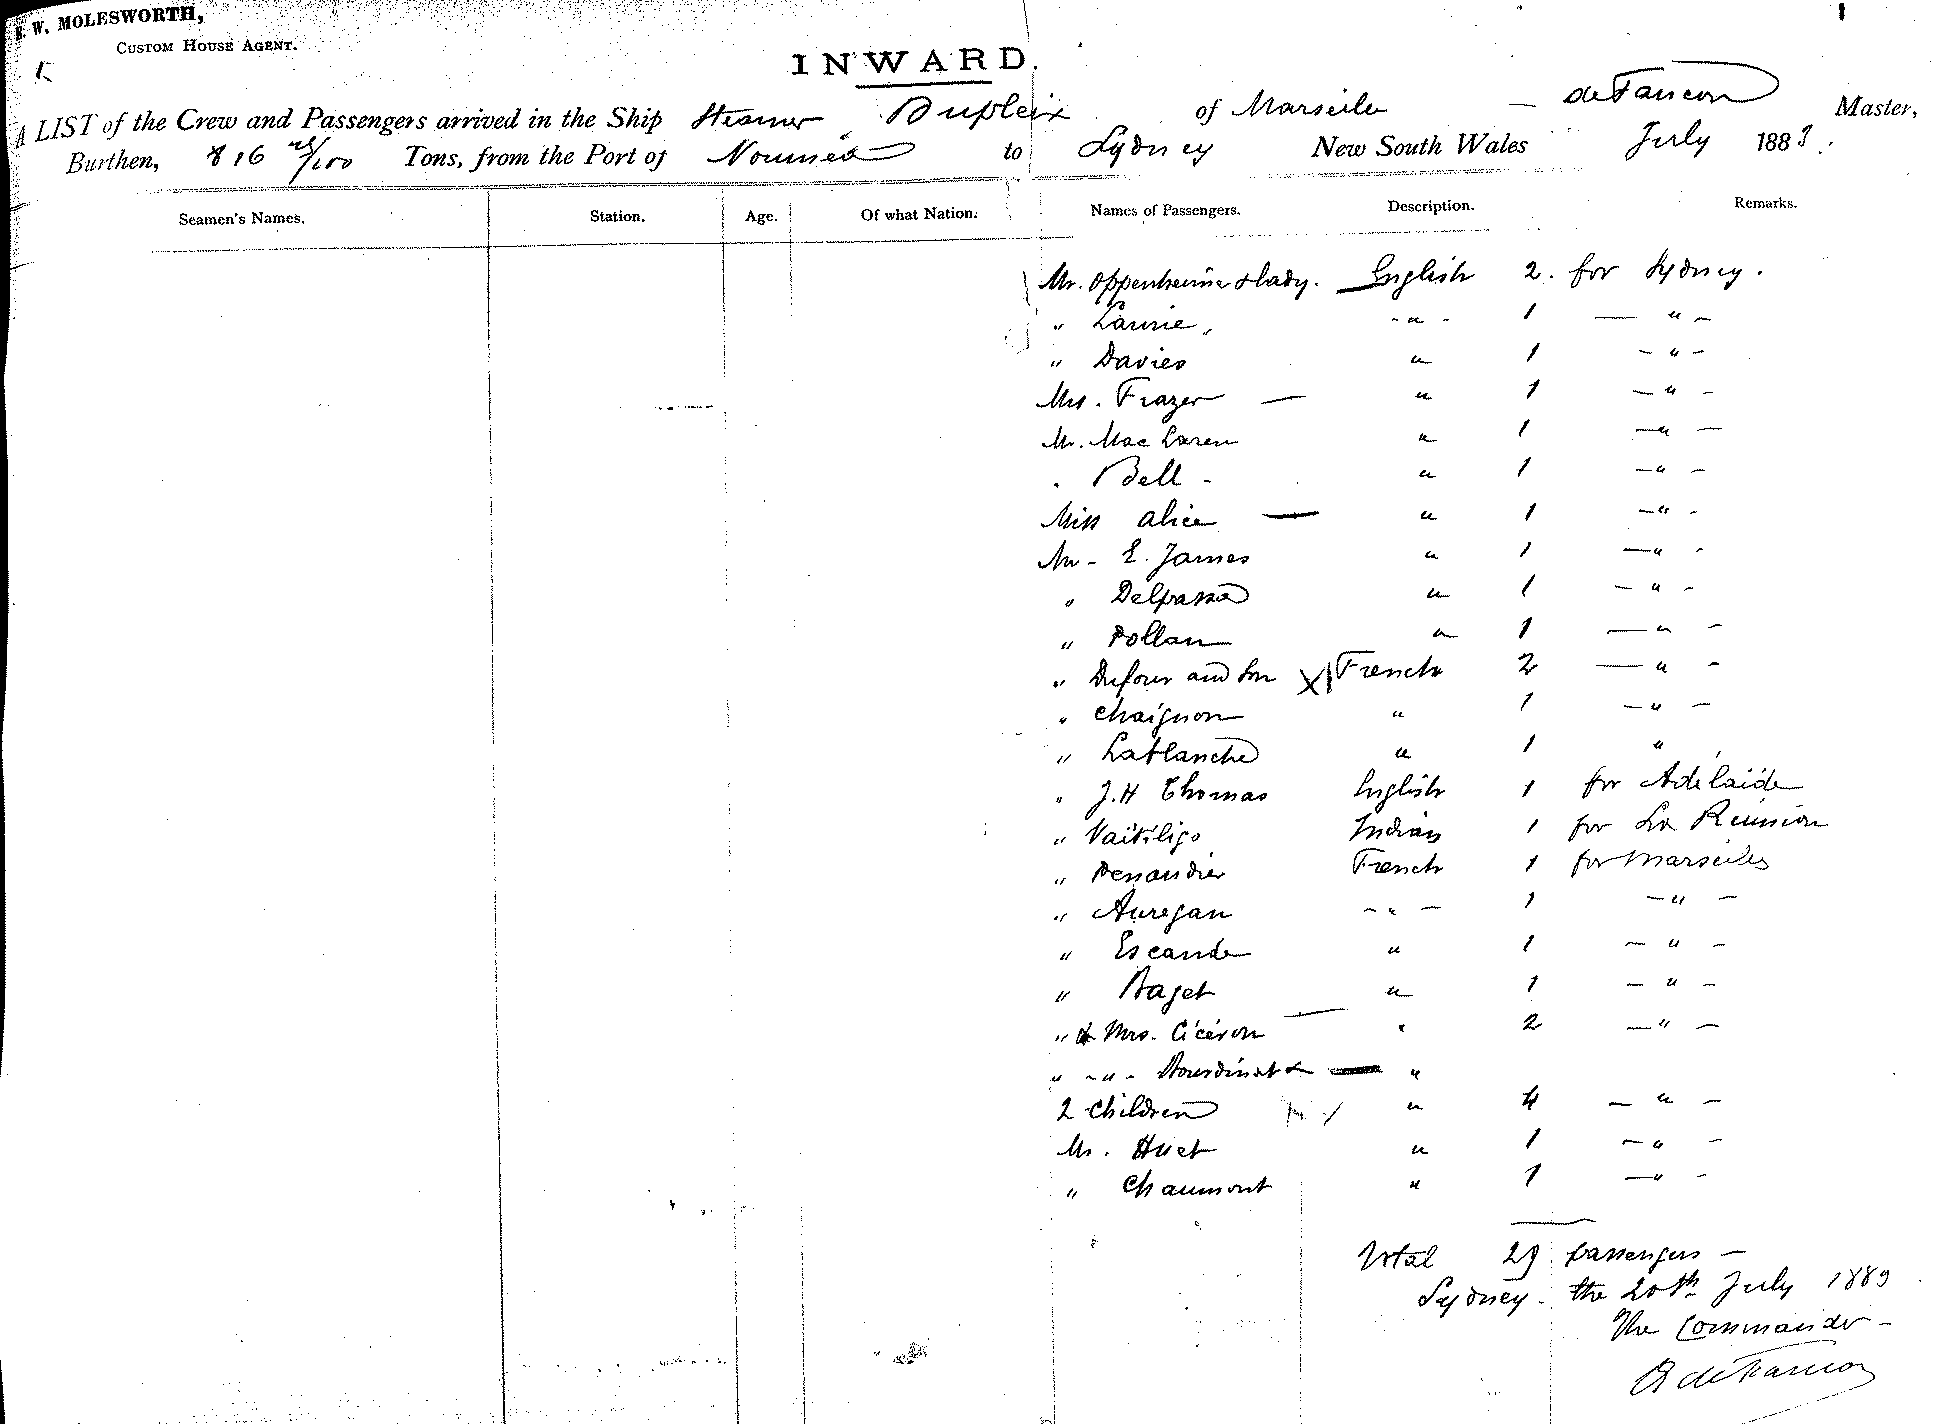 E. W. MOLESWORTH,
CUSTOM HOUSE AGENT.
INWARD.
A LIST of the Crew and Passengers arrived in the Ship Steamer Dupleix of Marseille — de Fancon Master,
Burthen, 816 /100 Tons, from the Port of Noumea to Sydney New South Wales July 1883.
Seamen's Names. Station. Age. Of what Nation. Names of Passengers. Description. Remarks.
Mr. Oppenheime & lady. English 2. for Sydney.
" Laurie, - " - 1 — " -
" Davies " 1 - " -
Mrs. Frazer — " 1 - " -
Mr. Mac Laren " 1 - " -
" Bell - " 1 - " -
Miss Alice — " 1 - " -
Mr - E. James " 1 - " -
" Delpassa " 1 - " -
" Dollan " 1 — " -
" Dufour and Son X French 2 — " -
" Chaignon " 1 - " -
" Lablanche " 1 "
" J.H Thomas English 1 for Adélaïde
" Vaitiligo Indian 1 for La Réunion
" Denandier French 1 for Marseilles
" Auregan - " - 1 - " -
" Escande " 1 - " -
" Baget " 1 - " -
" & Mrs. Cicéron — " 2 - " -
" - " - Bourdinat & — "
2 Children " 4 - " -
Mr. Huet " 1 - " -
" Chaumont " 1 - " -
Total 29 passengers —
Sydney. the 20th July 1883
The Commander -
de Fancon